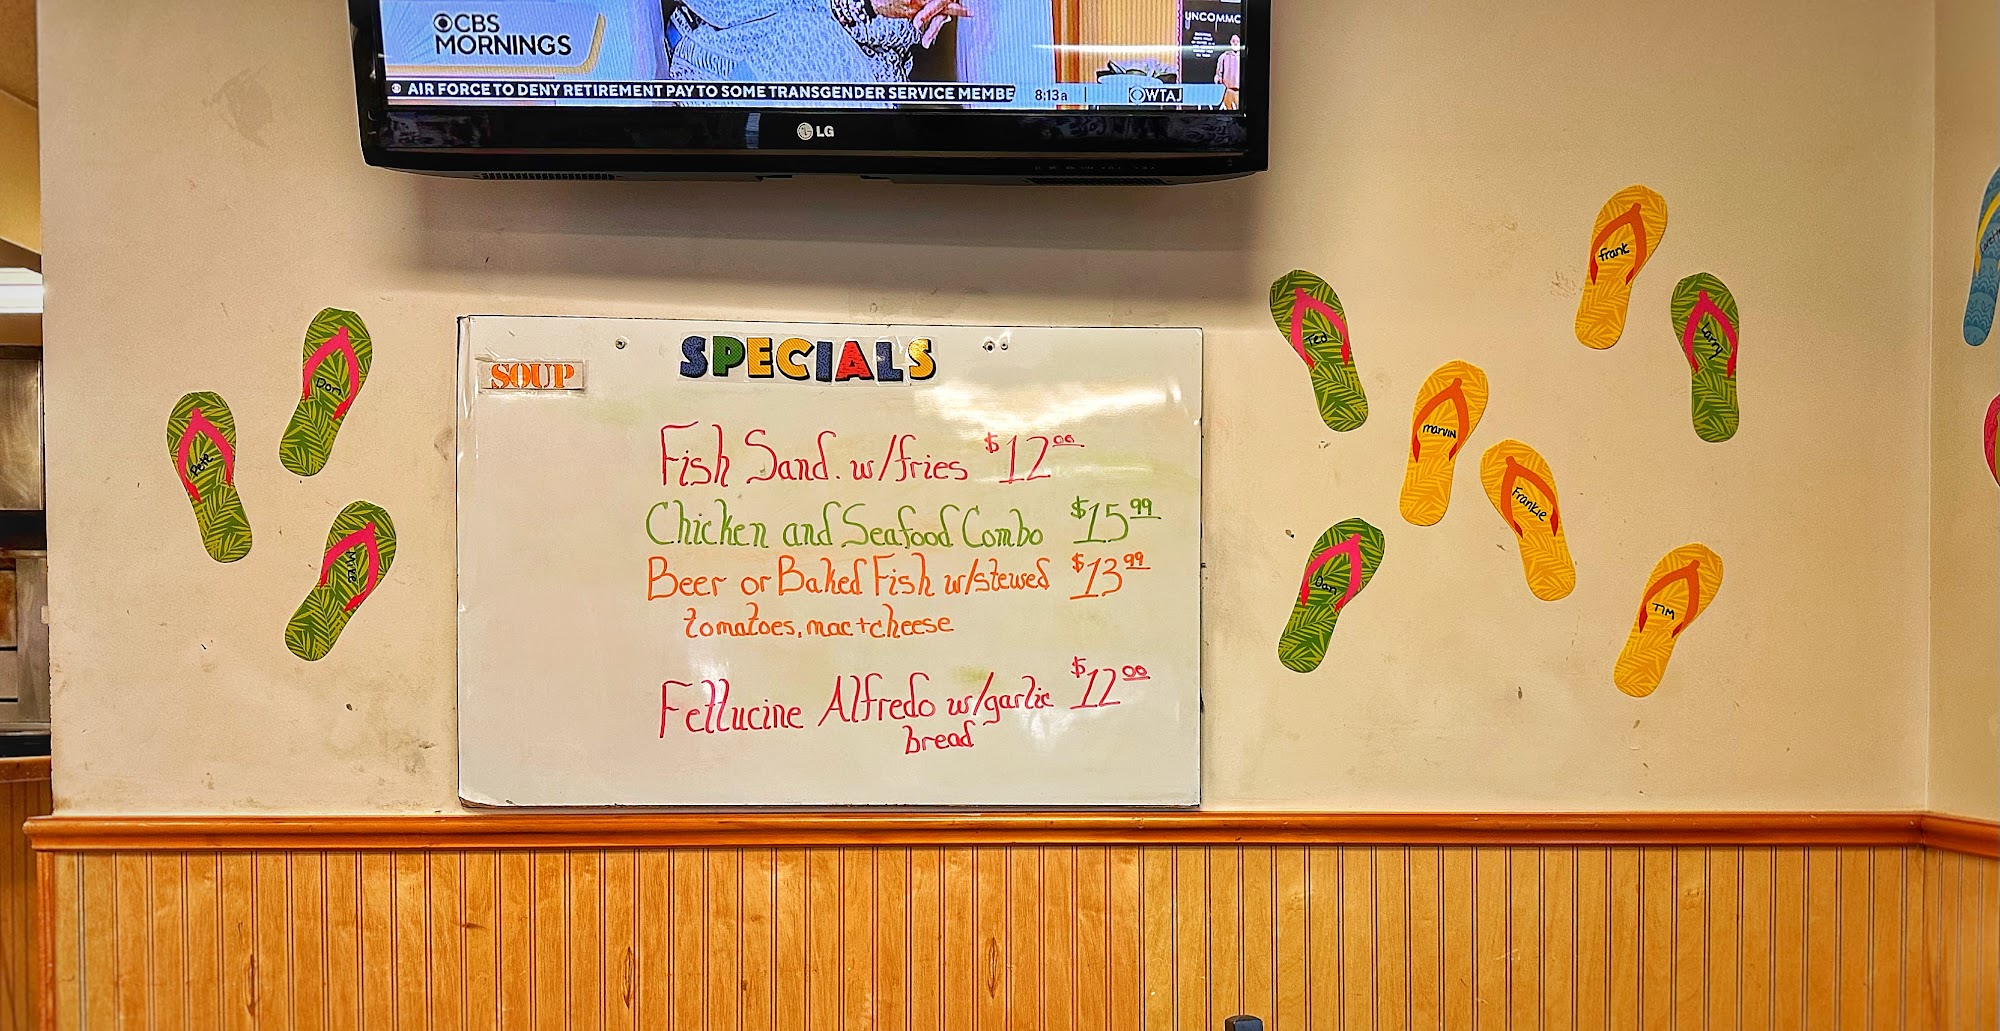 CBS
MORNINGS
AIR FORCE TO DENY RETIREMENT PAY TO SOME TRANSGENDER SERVICE MEMBE
8:13a
WTAJ
UNCOMMO
LG
SPECIALS
SOUP
Fish Sand. w/fries $12.00
Chicken and Seafood Combo $15.99
Beer or Baked Fish w/stewed $13.99
tomatoes, mac+cheese
Fettucine Alfredo w/garlic $12.00
bread
Pete
Don
Mike
Ted
frank
Larry
MARVIN
Frankie
Dan
TIM